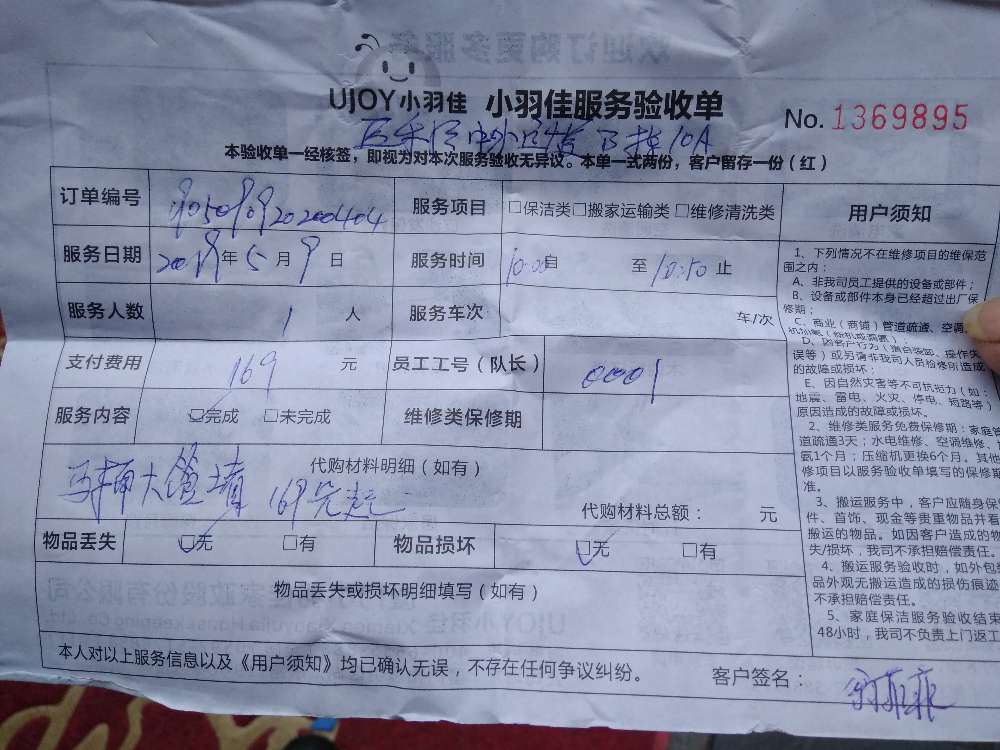 UJOY小羽佳 小羽佳服务验收单
No. 1369895
10A
本验收单一经核签，即视为对本次服务验收无异议。本单一式两份，客户留存一份（红）
订单编号 20200404
服务项目 □保洁类□搬家运输类 □维修清洗类
用户须知
服务日期 2019年5月9日
服务时间 10:00自 至10:50止
服务人数 1 人
服务车次 车/次
支付费用 169 元
员工工号（队长） 0001
服务内容 □完成 □未完成
维修类保修期
代购材料明细（如有）
马桶大管堵 169元
代购材料总额： 元
物品丢失 □无 □有
物品损坏 □无 □有
物品丢失或损坏明细填写（如有）
本人对以上服务信息以及《用户须知》均已确认无误，不存在任何争议纠纷。
客户签名：
1、下列情况不在维修项目的维保范
围之内：
A、非我司员工提供的设备或部件；
B、设备或部件本身已经超过出厂保
修期；
C、商业（商铺）管道疏通、空调
误等）或另请非我司人员检修所造成
的故障或损坏；
E、因自然灾害等不可抗拒力（如：
地震、雷电、火灾、停电、短路等）
原因造成的故障或损坏。
2、维修类服务免费保修期：家庭管
道疏通3天；水电维修、空调维修、
氨1个月；压缩机更换6个月。其他
修项目以服务验收单填写的保修期
准。
3、搬运服务中，客户应随身保管
件、首饰、现金等贵重物品并看
搬运的物品。如因客户造成的物
失/损坏，我司不承担赔偿责任。
4、搬运服务验收时，如外包
品外观无搬运造成的损伤痕迹
不承担赔偿责任。
5、家庭保洁服务验收结束
48小时，我司不负责上门返工